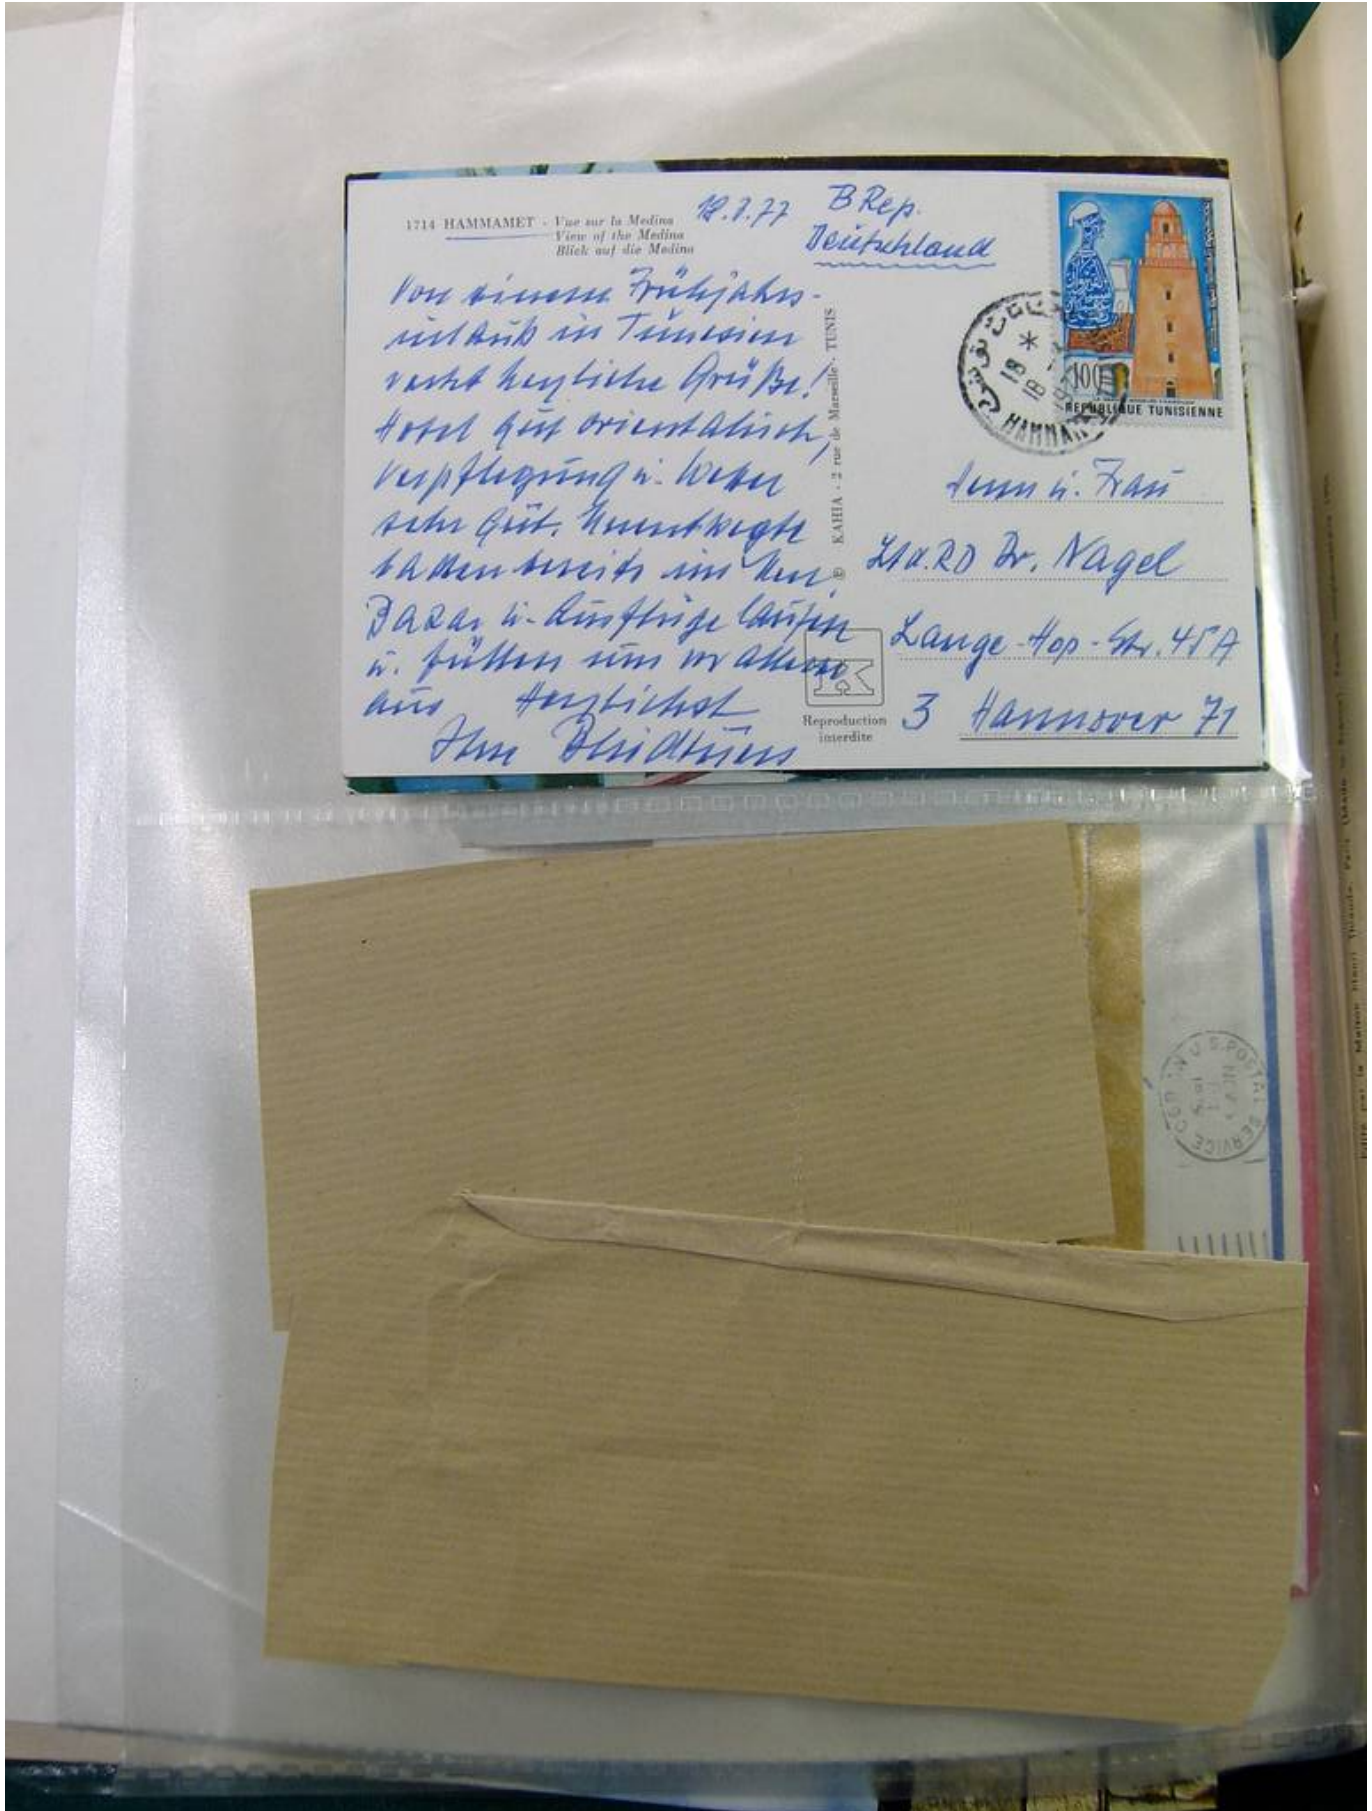 1714 HAMMAMET - Vue sur la Medina
View of the Medina
Blick auf die Medina
18.3.77
B Rep.
Deutschland
Von einem Frühjahrs-
urlaub in Tunesien
recht herzliche Grüße!
Hotel gut orientalisch,
Verpflegung u. Wetter
sehr gut. Unentwegte
baden bereits im Meer
Bazar u. Ausflüge laufen
u. füllen uns vor allem
aus Herzlichst
Ihre
© KAHIA - 2 rue de Marseille - TUNIS
Reproduction
interdite
100
REPUBLIQUE TUNISIENNE
18
18
HAMMA
Herrn u. Frau
Ltd. RD Dr. Nagel
Lange-Hop-Str. 45 A
3 Hannover 71
U.S. POSTAL SERVICE